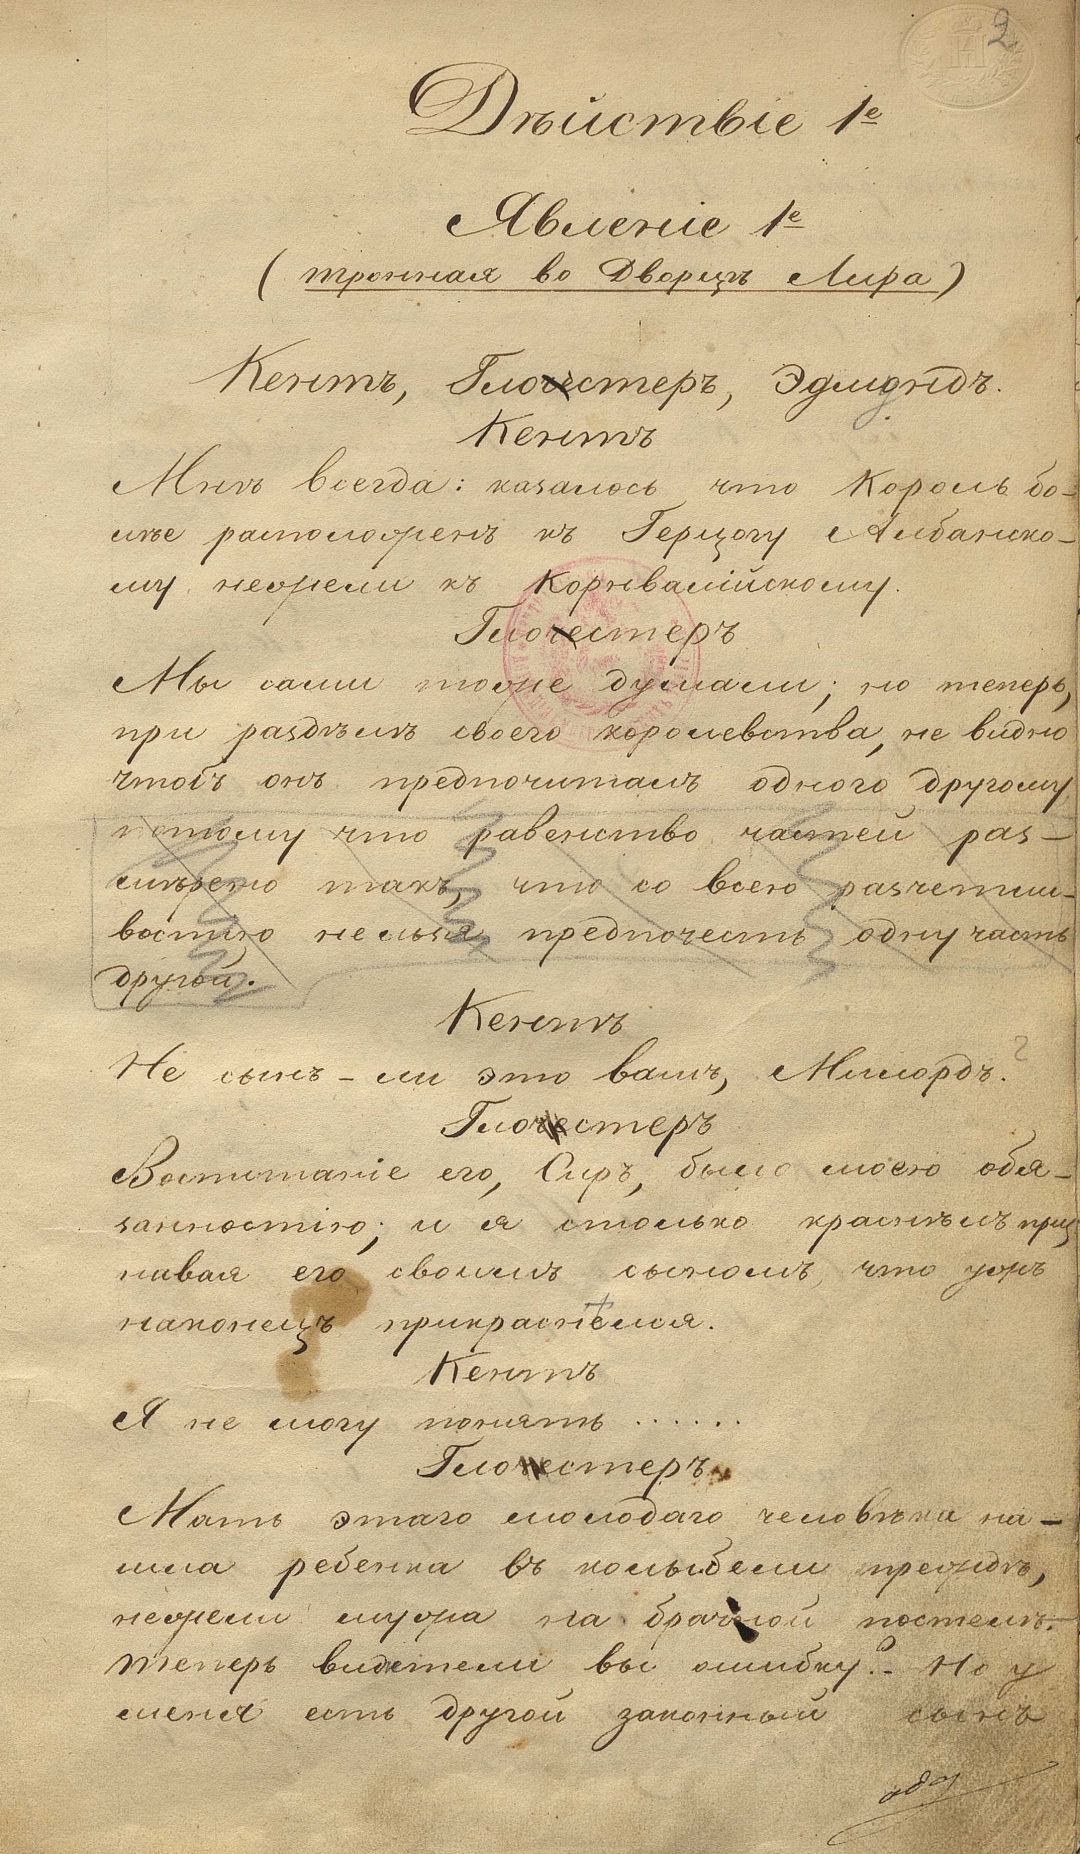 2
Дѣйствіе 1е
Явленіе 1е
(тронная во Дворцѣ Лира)
Кентъ, Глочестеръ, Эдмондъ.
Кентъ
Мнѣ всегда: казалось что Король бо-
лѣе расположенъ къ Герцогу Албанско-
му нежели къ Корнвалійскому.
Глочестеръ
Мы сами тоже думали; но теперь,
при раздѣлѣ своего королевства, не видно
чтобъ онъ предпочиталъ одного другому
потому что равенство частей раз-
мѣрено такъ, что со всею разчетли-
востію нельзя предпочесть одну часть
другой.
Кентъ
Не сынъ-ли это вашъ, Милордъ?
Глочестеръ
Воспитаніе его, Сиръ, было моею обя-
занностію; и я столько краснѣлъ приз
навая его своимъ сыномъ, что ужъ
наконецъ прикраснѣлся.
Кентъ
Я не могу понять ......
Глочестеръ
Мать этаго молодаго человѣка на-
шла ребенка въ колыбели прежде,
нежели мужа на брачной постелѣ.
Теперь видетели вы ошибку? - Но у
меня есть другой законный сынъ